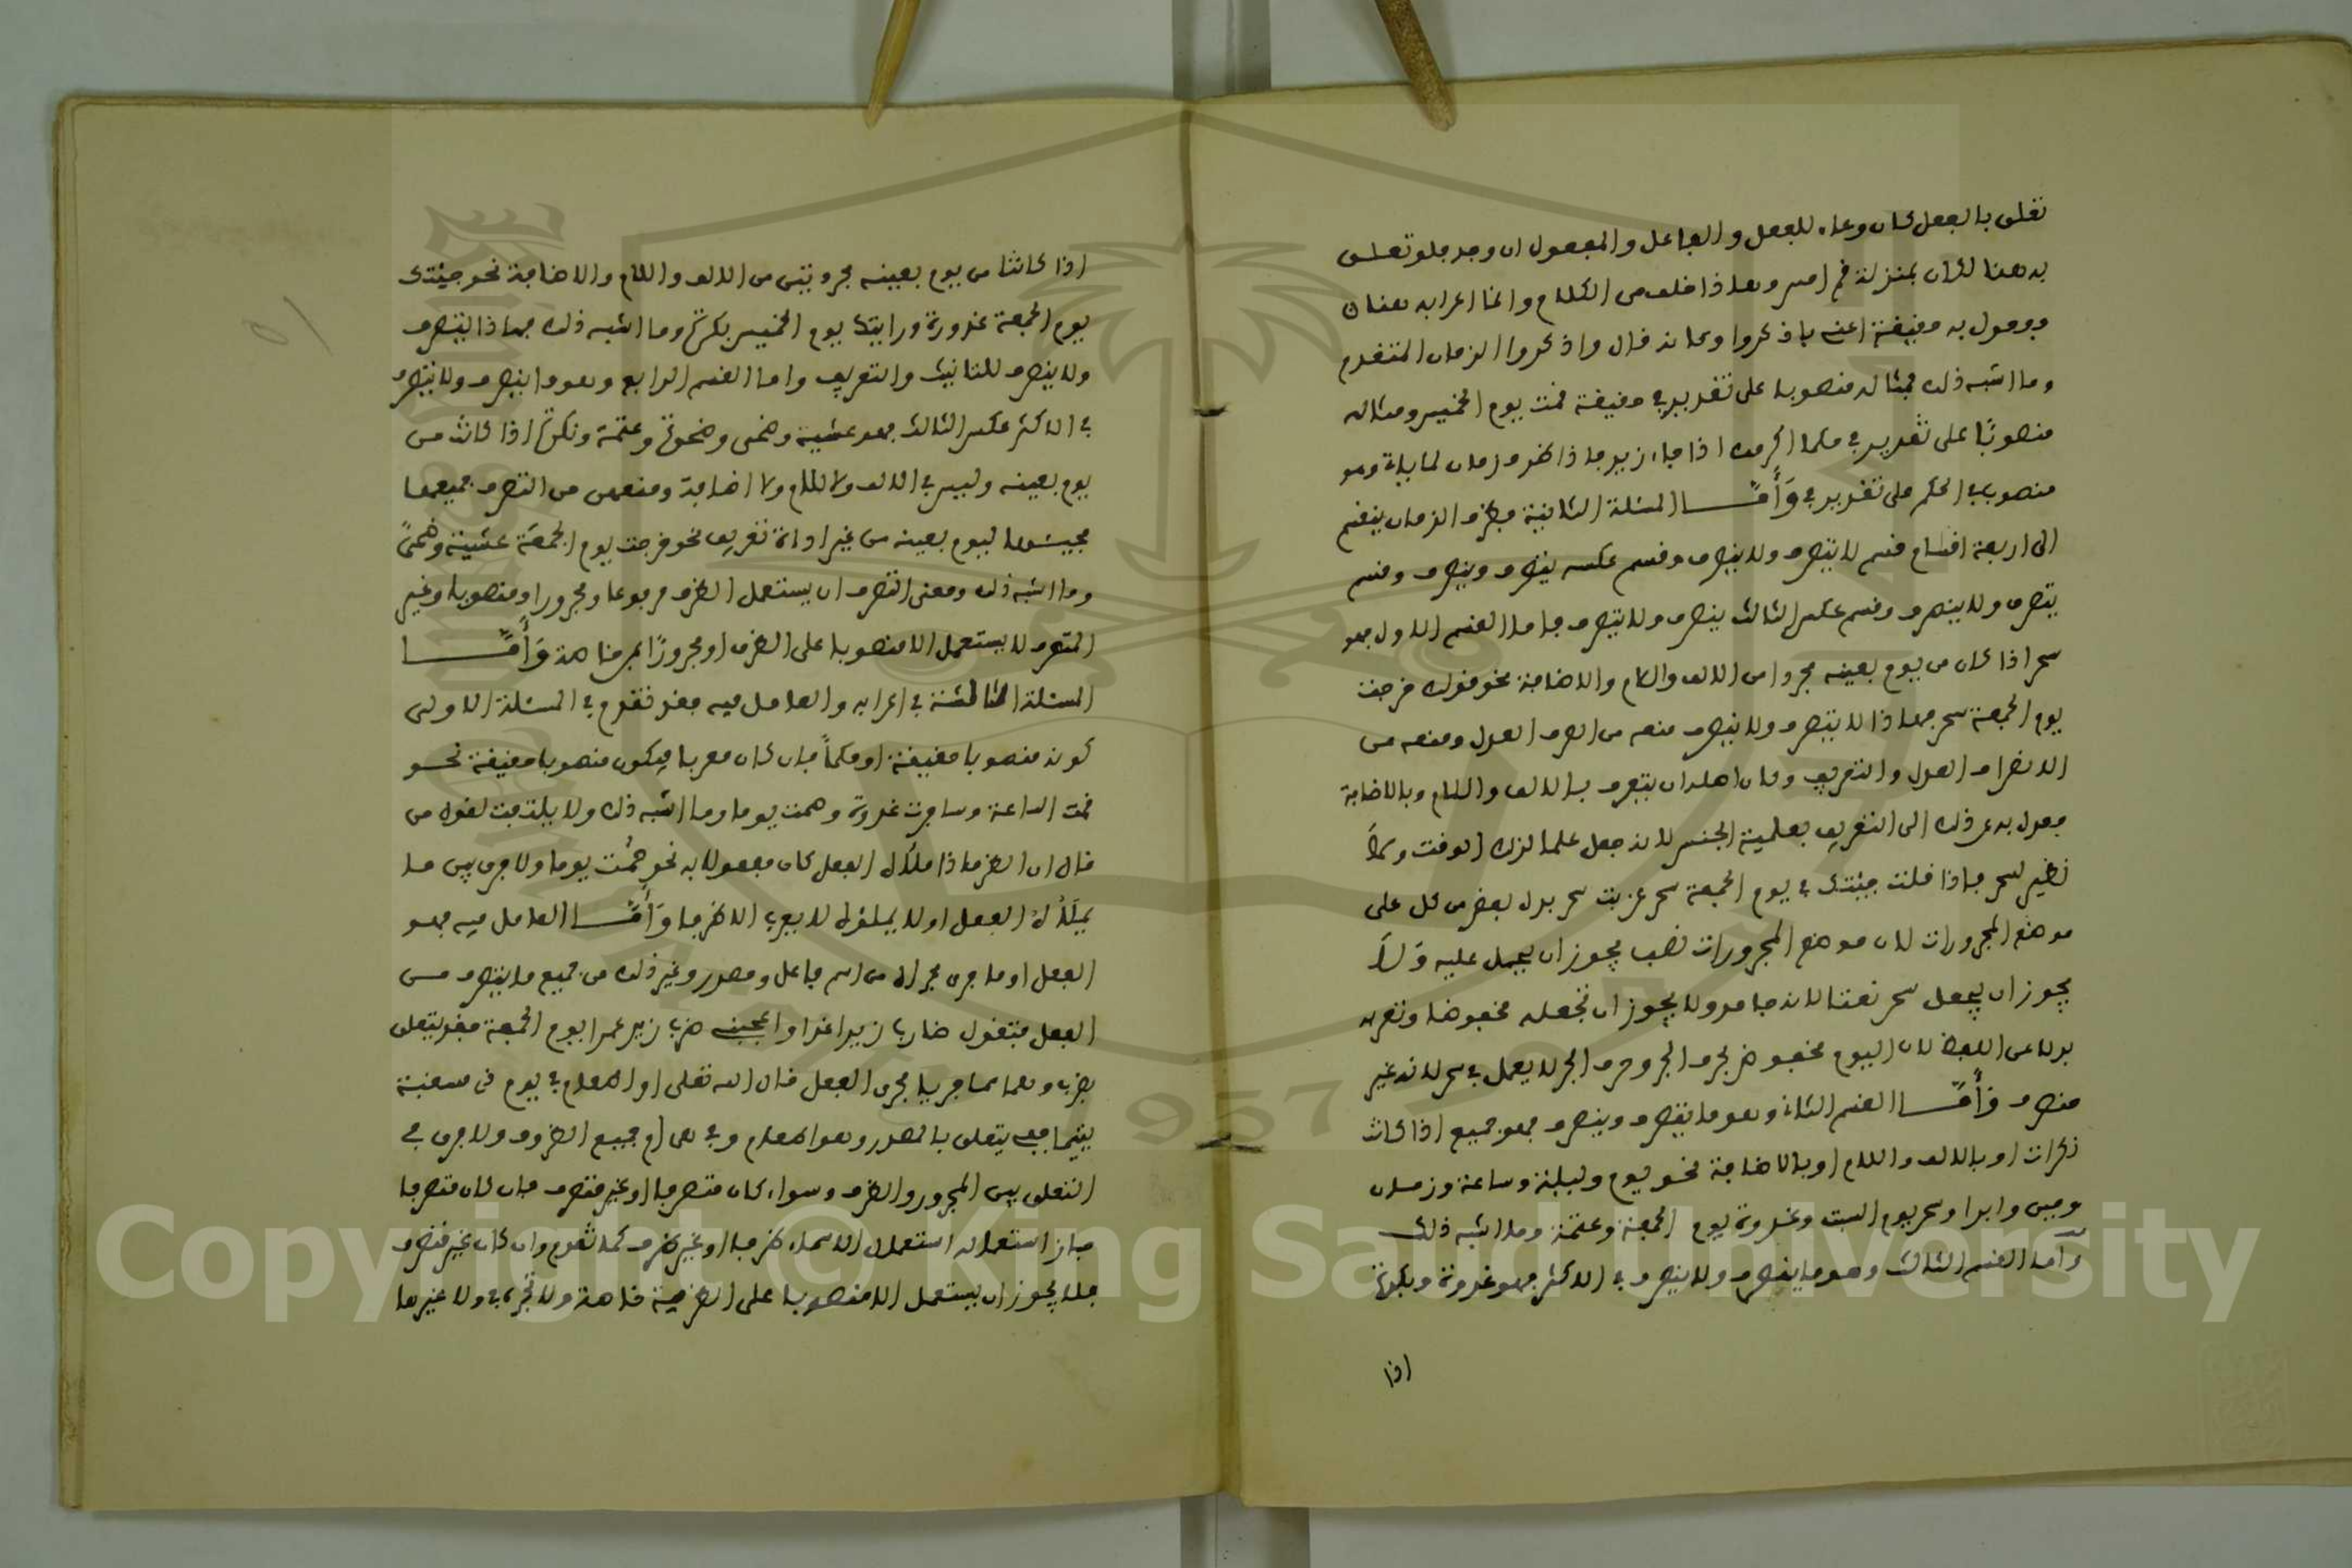 تعلق بالفعل كان وعاء للفعل والفاعل والمفعول ان وجد فلو تعلق
به هنا لكان بمنزلة قم امس وهذا خلف من الكلام وانما اعرابه هنا ان
مفعول به حقيقة اعنى باذكروا وكانه قال واذكروا الزمان المتقدم
وما اشبه ذلك فمثاله منصوبا على تقدير في حقيقة قمت يوم الخميس ومثاله
منصوبًا على تقدير في حكما اكرمك اذا جاء زيد فاذا ظرف زمان لما ياتي وهو
منصوب في الحكم على تقدير في وَأَمَّــا المسئلة الثانية فظرف الزمان ينقسم
الى اربعة اقسام قسم لا يتصرف ولا ينصرف وقسم عكسه يتصرف وينصرف وقسم
يتصرف ولا ينصرف وقسم عكس الثالث ينصرف ولا يتصرف فاما القسم الاول فهو
سحر اذا كان من يوم بعينه مجردا من الالف واللام والاضافة نحو قولك خرجت
يوم الجمعة سحر فهذا لا يتصرف ولا ينصرف منعه من الصرف العدل ومنعه من
الانصراف العدل والتعريف وكان اهله ان يتعرف بالالف واللام وبالاضافة
فعدل به عن ذلك الى التعريف بعلمية الجنس لانه جعل علما لذلك الوقت ولا
نظير لسحر فاذا قلت جيئتك في يوم الجمعة سحر عربت سحر بدل بعض من كل على
موضع المجرورات لان موضع المجرورات نصب يجوز ان يحمل عليه وَلاَ
يجوز ان يجعل سحر نعتا لانه جامد ولا يجوز ان تجعله مخفوضا وتعربه
بدلا على اللفظ لان اليوم مخفوض بحرف الجر وحرف الجر لا يعمل في سحر لانه غير
منصرف وَأَمَّــا القسم الثانى وهو ما يتصرف وينصرف فهو جميع اذا كانت
نكرات او بالالف واللام او بالاضافة نحو يوم وليلة وساعة وزمان
وحين وابدا وسحر يوم السبت وغدوة يوم الجمعة وعتمة وما اشبه ذلك
وَأما القسم الثالث وهو ما يتصرف ولا ينصرف في الاكثر فهو غدوة وبكرة
اذا
اذا كانتا من يوم بعينه مجردتين من الالف واللام والاضافة نحو جيئتك
يوم الجمعة غدوة ورايتك يوم الخميس بكرة وما اشبه ذلك فهاذا يتصرف
ولا ينصرف للتانيث والتعريف واما القسم الرابع وهو ما ينصرف ولا يتصرف
في الاكثر عكس الثالث فهو عشية وضحى وضحوة وعتمة وبكرة اذا كانت من
يوم بعينه وليس في الالف ولا اللام ولا اضافة ومنعهن من التصرف جميعها
مجيئها ليوم بعينه من غير اداة تعريف نحو خرجت يوم الجمعة عشية وضحىً
وما اشبه ذلك ومعنى التصرف ان يستعمل الظرف مرفوعا ومجرورا ومنصوبا وغير
المتصرف لا يستعمل الا منصوبا على الظرف او مجرورًا بمن خاصة وَأَمَّــا
المسئلة الثالثة في اعرابه والعامل فيه فقد تقدم في المسئلة الاولى
كونه منصوبا حقيقة او حكماً فان كان معربا فيكون منصوبا حقيقة نحو
قمت الساعة وسافرت غدوة وصمت يوما وما اشبه ذلك ولا يلتفت لقول من
قال ان الظرف اذا ملأله الفعل كان مفعولا به نحو صُمْت يوما ولا فرق بين ما
يملأه الفعل او لا يملؤه لا يعرب الا ظرفا وَأَمَّــا العامل فيه فهو
الفعل او ما جرى مجراه من اسم فاعل ومصدر وغير ذلك من جميع ما يتصرف من
الفعل فتقول ضاربا زيدا غدا واعجبني ضرب زيد عمرا يوم الجمعة فقد يتعلق
بضرب وهما مما جريا مجرى الفعل قال الله تعلى او اطعام في يوم ذى مسغبة
يتيما فيه يتعلق بالمصدر وهو اطعام وفي هى ام جميع الظروف ولا فرق في
التعلق بين المجرور والظرف وسواء كان متصرفا او غير متصرف فان كان متصرفا
جاز استعماله استعمال الاسماء ظرفا او غير ظرف كما تقدم وان كان غير متصرف
فلا يجوز ان يستعمل الا منصوبا على الظرفية خاصة ولا تجره في ولا غيرها
Copyright © King Saud University
1957